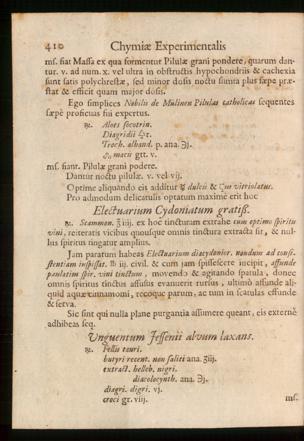 410 Chymiæ Experimentalis
ms. fiat Massa ex qua formentur Pilulæ grani pondere, quarum dan-
tur. v. ad num. x. vel ultra in obstructis hypochondriis & cachexia
sunt satis polychrestæ, sed minor dosis noctu sumta plus sæpe præ-
stat & efficit quam major dosis.
Ego simplices Nobilis de Mulinen Pilulas catholicas sequentes
sæpè proficuas fui expertus.
℞. Aloes socotrin.
Diagridii
Troch. alhand. p. ana. ℈j.
macis gtt. v.
ms. fiant. Pilulæ grani pondere.
Dantur noctu pilulæ. v. vel vij.
Optime aliquando eis additur ☿ dulcis & vitriolatus.
Pro admodum delicatulis optatum maxime erit hoc
Electuarium Cydoniatum gratiss.
℞. Scammon. ℥iij. ex hoc tincturam extrahe cum optimo spiritu
vini, reiteratis vicibus quousque omnis tinctura extracta sit, & nul-
lus spiritus tingatur amplius.
Jam paratum habeas Electuarium diacydonior. nondum ad consi-
stentiam inspissat. ℔ iij. civil. & cum jam spissescere incipit, affunde
paulatim spir. vini tinctum, movendo & agitando spatula, donec
omnis spiritus tinctus affusus evanuerit rursus, ultimò affunde ali-
quid aquæ cinnamomi, recoque parum, ac tum in scatulas effunde
& serva.
Sic sunt qui nulla plane purgantia assumere queant, eis externè
adhibeas seq.
Unguentum Jessenii alvum laxans.
℞. Fellis tauri.
butyri recent. non saliti ana. ℥iij.
extract. helleb. nigri.
diacolocynth. ana. ℈j.
diagri. digri. vj.
croci gr. viij.
ms.